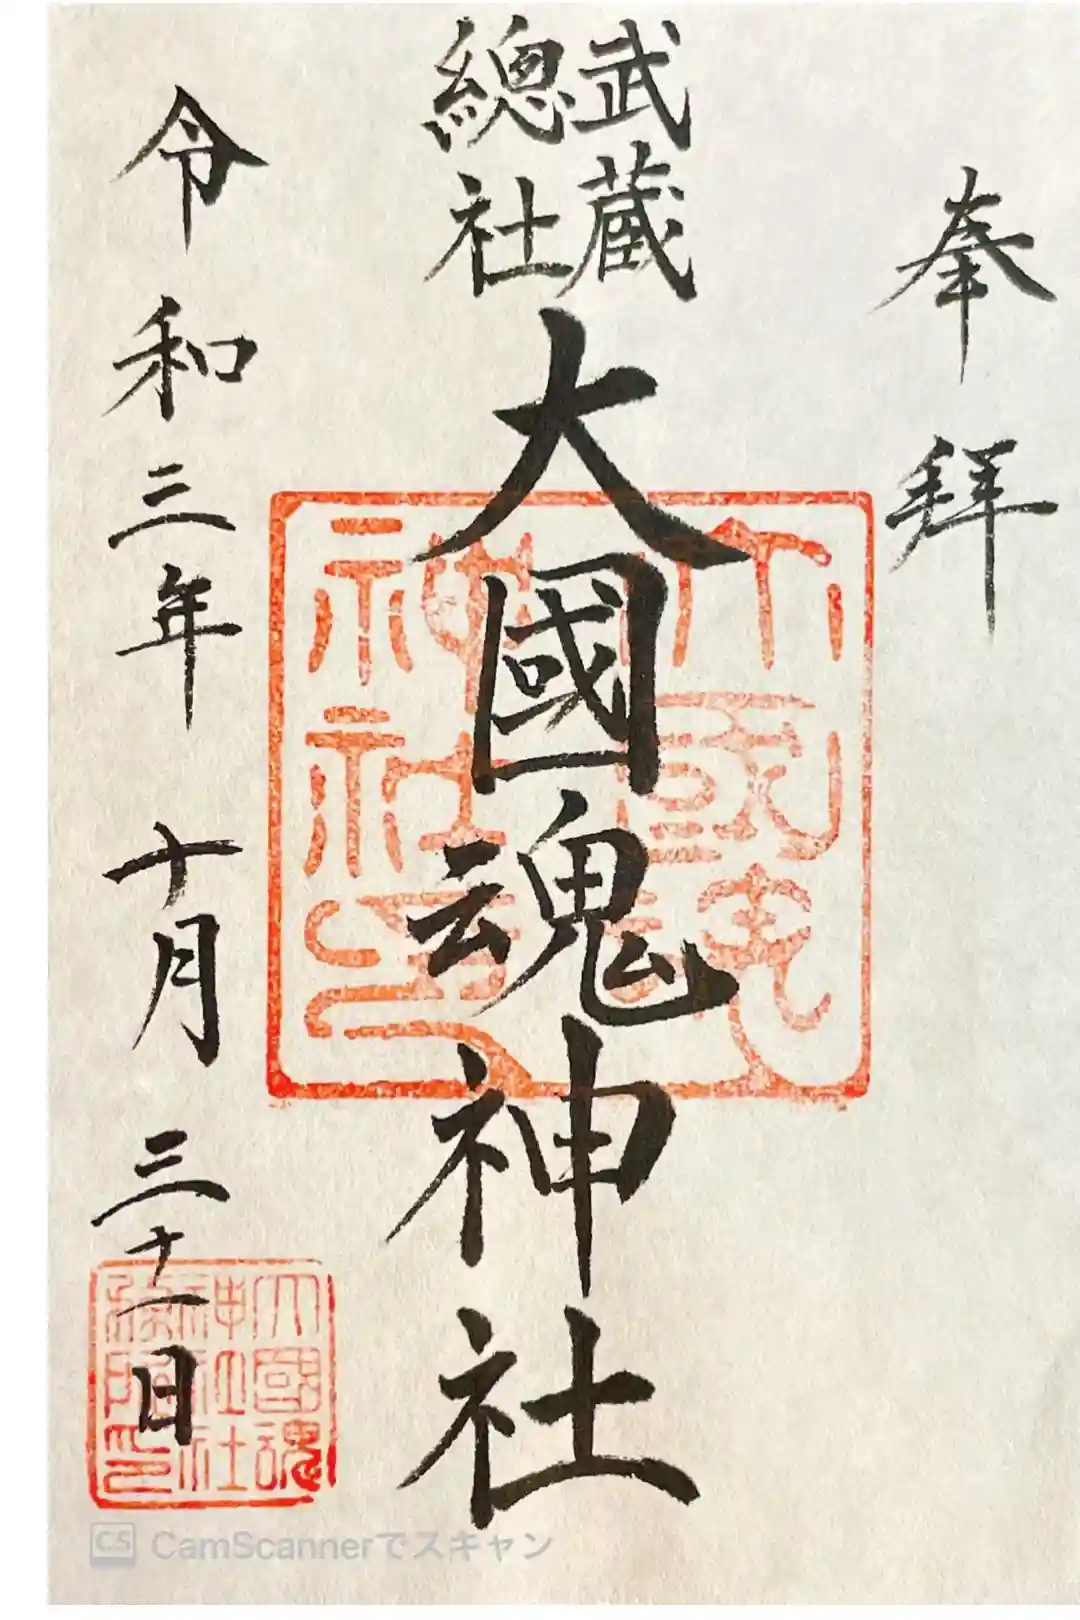 奉拜
武蔵
總社
大國魂神社
令和三年 十月 三十一日
大國魂
神社
大國魂
神社
CS CamScannerでスキャン